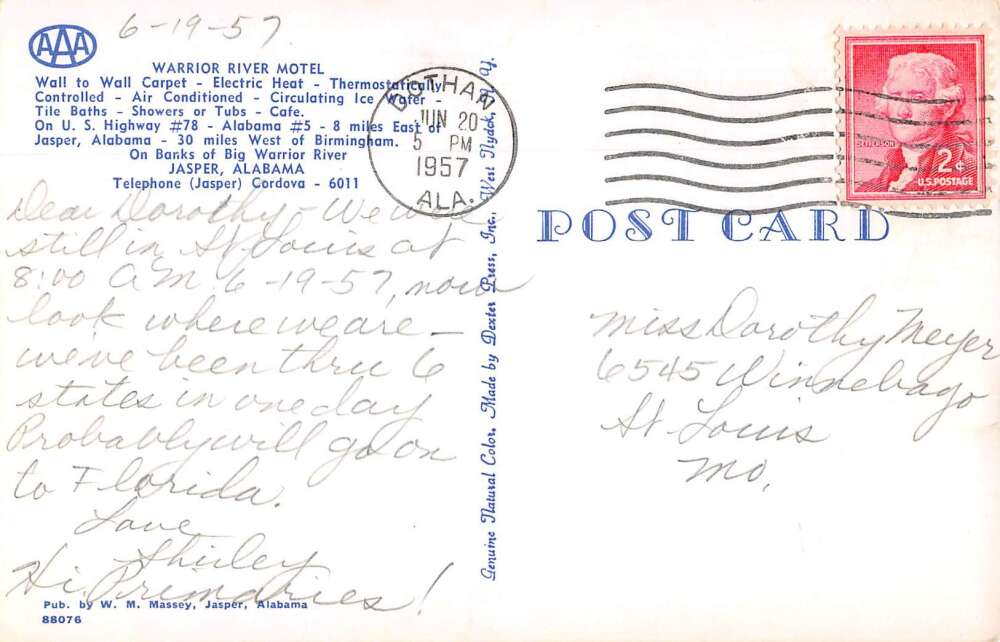 AAA
6-19-57
WARRIOR RIVER MOTEL
Wall to Wall Carpet - Electric Heat - Thermostatically
Controlled - Air Conditioned - Circulating Ice Water -
Tile Baths - Showers or Tubs - Cafe.
On U. S. Highway #78 - Alabama #5 - 8 miles East of
Jasper, Alabama - 30 miles West of Birmingham.
On Banks of Big Warrior River
JASPER, ALABAMA
Telephone (Jasper) Cordova - 6011
Dear Dorothy - We
still in St. Louis at
8:00 A.M. 6-19-57, now
look where we are -
we've been thru 6
states in one day
Probably will go on
to Florida.
Love
Shirley
Hi Primaries!
Pub. by W. M. Massey, Jasper, Alabama
88076
Genuine Natural Color. Made by Dexter Press, Inc., West Nyack, N. Y.
DOTHAN
JUN 20
5 PM
1957
ALA.
JEFFERSON
2¢
U.S. POSTAGE
POST CARD
Miss Dorothy Meyer
6545 Winnebago
St. Louis
Mo.